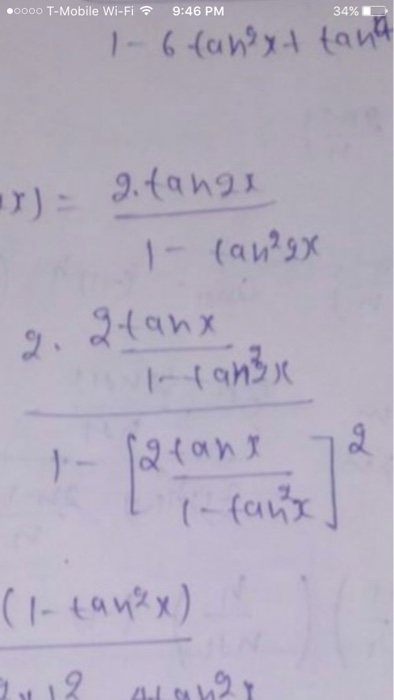 T-Mobile Wi-Fi 9:46 PM 34%
1 - 6 tan²x + tan⁴
x) = 2.tan2x
1 - tan²2x
2. 2tanx
1 - tan²x
1 - [2tanx
1 - tan²x]²
(1 - tan²x)